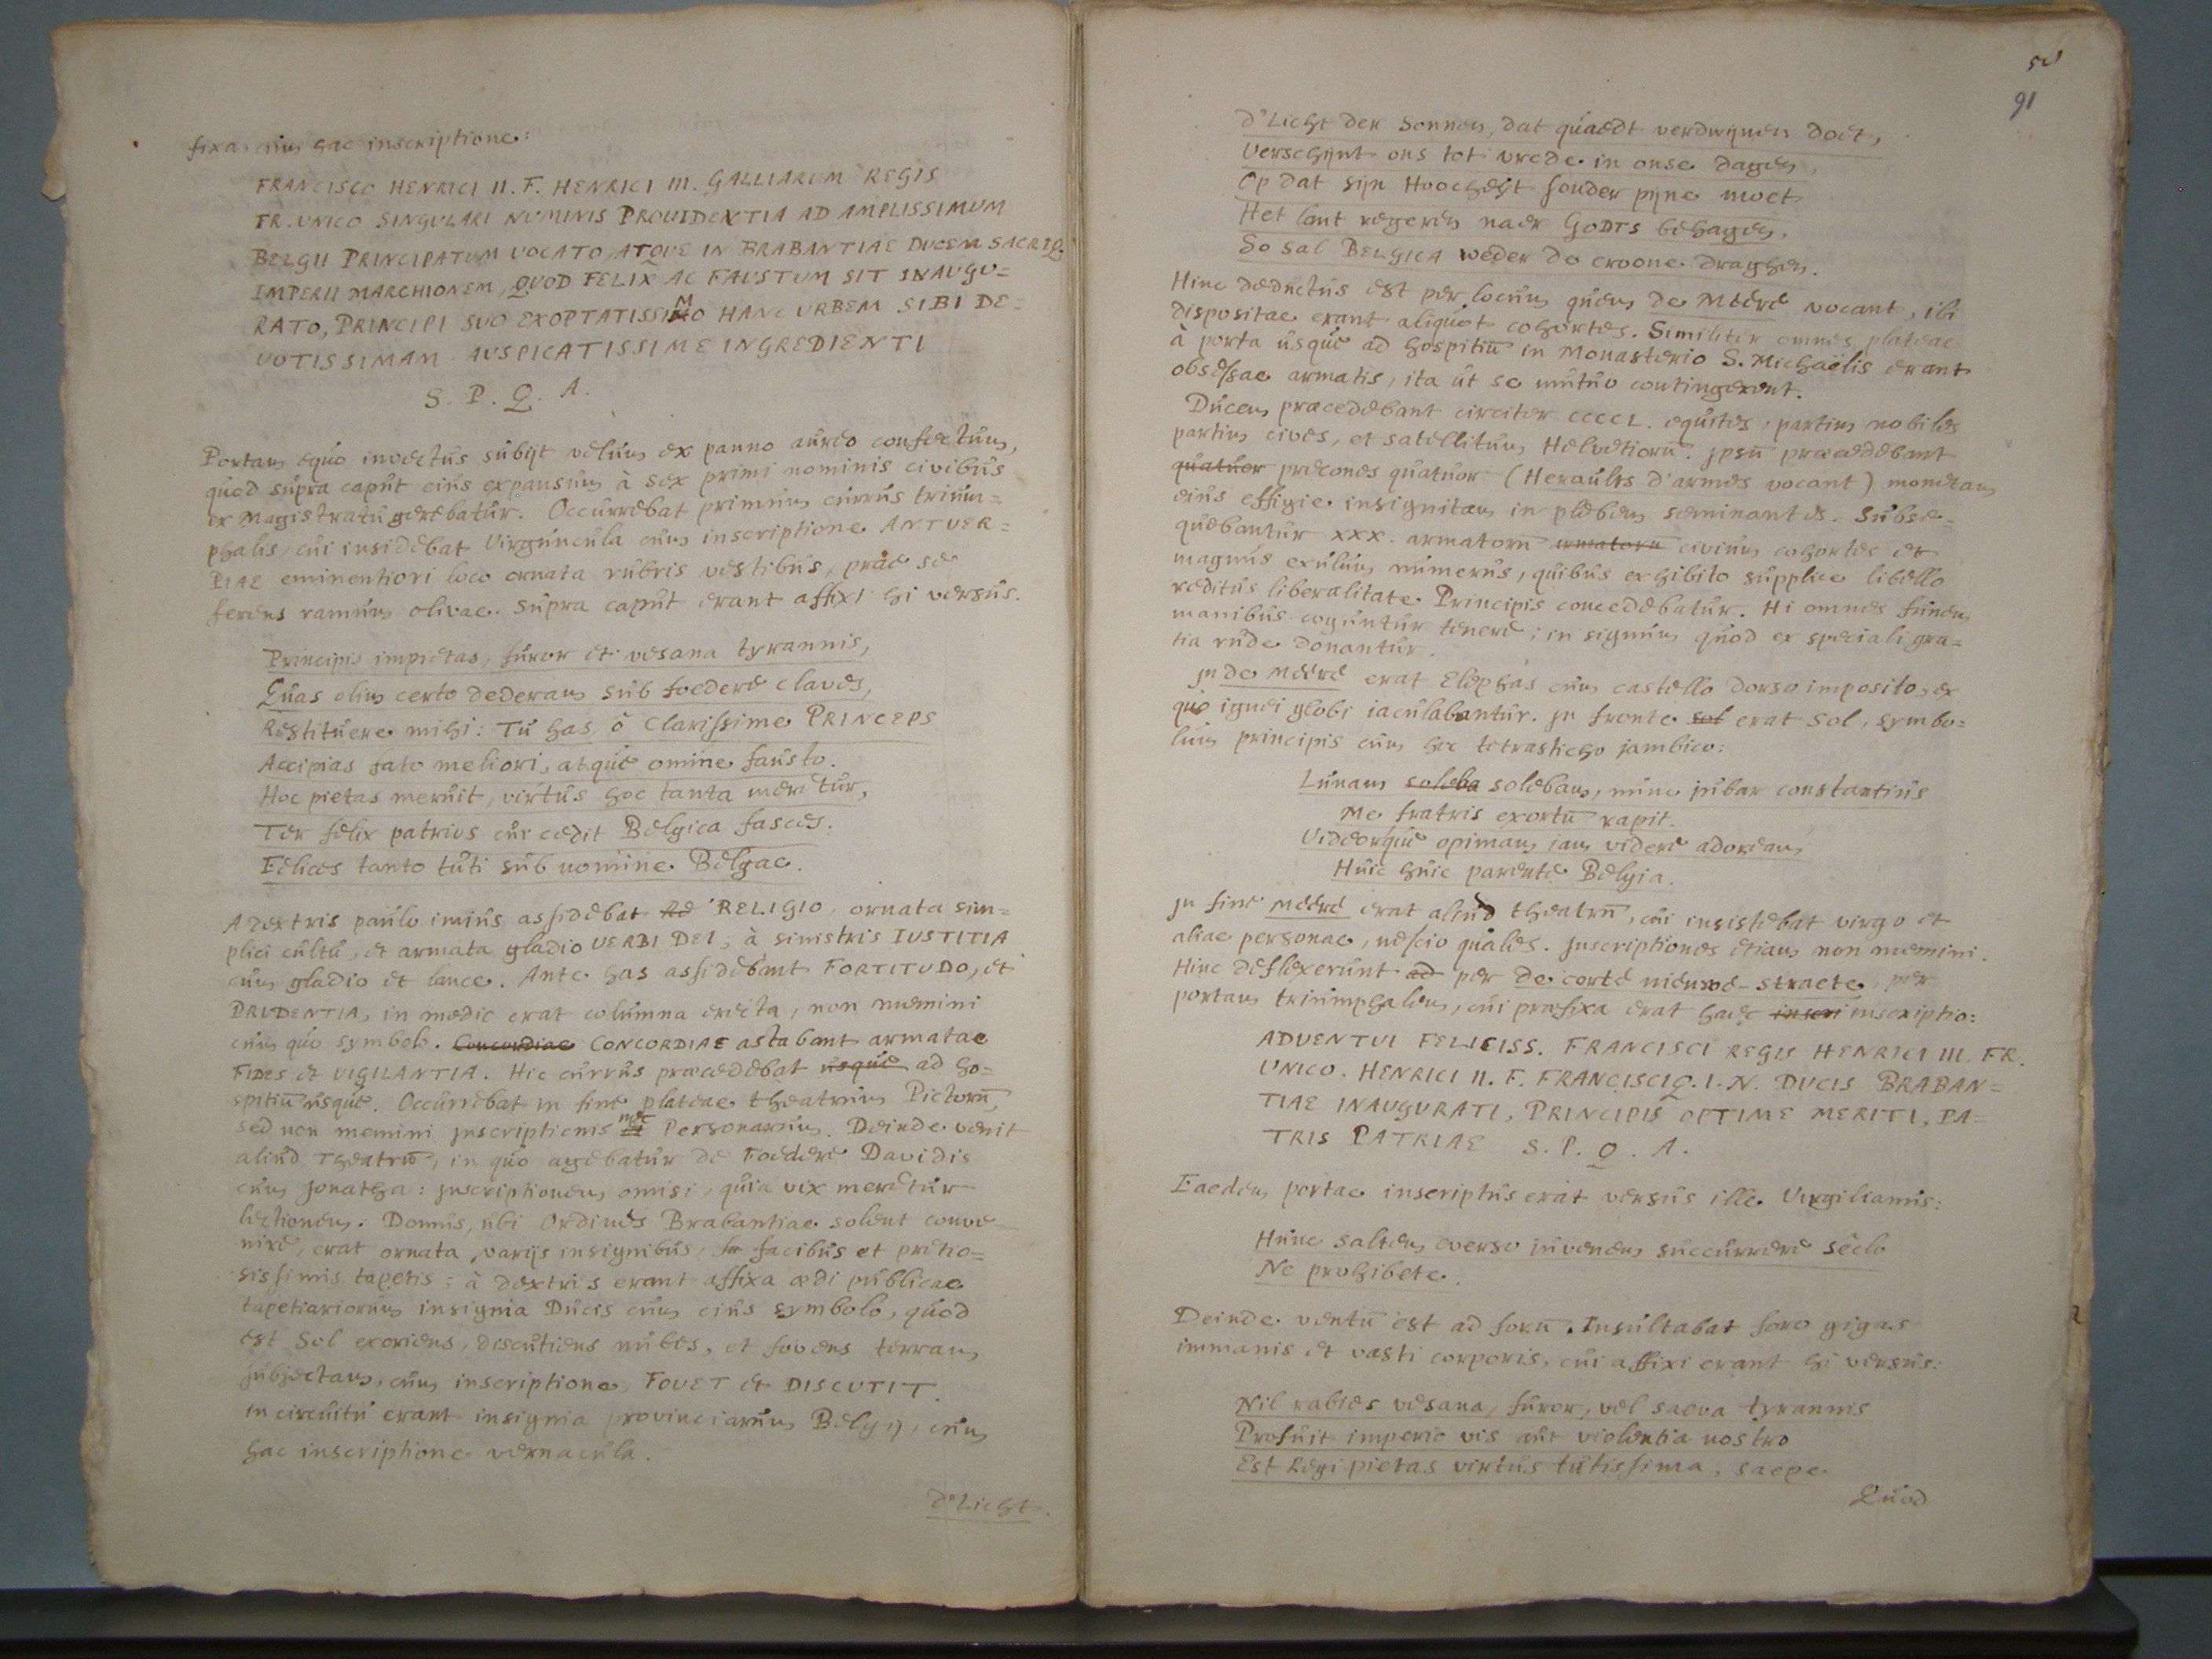 fixa, cum hac inscriptione:
FRANCISCO HENRICI II. F. HENRICI III. GALLIARUM REGIS
FR. UNICO SINGULARI NUMINIS PROUIDEXTIA AD AMPLISSIMUM
BELGII PRINCIPATUM VOCATO, ATQUE IN BRABANTIAE DUCEM SACRIQ.
IMPERII MARCHIONEM, QUOD FELIX AC FAUSTUM SIT INAUGU=
RATO, PRINCIPI SUO EXOPTATISSIMO HANC URBEM SIBI DE=
UOTISSIMAM AUSPICATISSIME INGREDIENTI
S. P. Q. A.
Portam equo invectus subijt velum ex panno aureo confectum,
quod supra caput eius expansum à sex primi nominis civibus
ex Magistratu gerebatur. Occurrebat primum currus trium=
phalis, cui insidebat Virguncula cum inscriptione ANTVER=
PIAE eminentiori loco ornata rubris vestibus, prae se
ferens ramum olivae. Supra caput erant affixi hi versus.
Principis impietas, furor et vesana tyrannis,
Quas olim certo dederam sub foedere claves,
Restituere mihi: Tu has, ô Clarissime PRINCEPS
Accipias fato meliori, atque omine fausto.
Hoc pietas meruit, virtus hoc tanta meretur,
Ter felix patrios cui cedit Belgica fasces.
Felices tanto tuti sub nomine Belgae.
A dextris paulo imius assidebat Ad RELIGIO, ornata sim=
plici cultu, et armata gladio VERBI DEI, à sinistris IUSTITIA
cum gladio et lance. Ante has assidebant FORTITUDO, et
PRUDENTIA, in medio erat columna erecta, non memini
cum quo symbolo. Concordiae CONCORDIAE astabant armatae
FIDES et VIGILANTIA. Hic currus praecedebat usque ad ho=
spitiū usque. Occurrebat in fine plateae theatrum Pictorū,
sed non memini inscriptionis nec Personarum. Deinde venit
aliud Theatrū, in quo agebatur de Foedere Davidis
cum Jonatha: inscriptionem omisi, quia vix meretur
lectionem. Domus, ubi Ordines Brabantiae solent conve=
nire, erat ornata varijs insignibus, facibus et pretio=
sissimis tapetis; à dextris erant affixa aedi publicae
tapetiariorum insignia Ducis cum eius symbolo, quod
est Sol exoriens, discutiens nubes, et fovens terram
subjectam, cum inscriptione, FOVET et DISCUTIT.
in circuitu erant insignia provinciarum Belgij, cum
hac inscriptione vernacula.
d'Licht.
91
d'Licht der Sonnen, dat quaedt verdwijnen doet,
Verschijnt ons tot vrede in onse dagen,
Op dat sijn Hoocheyt sonder pijne moet
Het lant regeren naer GODTS behagen,
So sal BELGICA weder de croone draghen.
Hinc deductus est per locum quem de Meere vocant, ibi
dispositae erant aliquot cohortes. Similiter omnes plateae
à porta usque ad hospitiū in Monasterio S. Michaëlis erant
obsessae armatis, ita ut se mutuo contingerent.
Ducem praecedebant circiter CCCCL. equites, partim nobiles
partim cives, et satellitum Helvetiorū. Ipsū praecedebant
quatuor praecones quatuor (Heraults d'armes vocant) monetam
eius effigie insignitam in plebem seminantes. Subse=
quebantur XXX. armatorū armatorū civium cohortes et
magnus exulum numerus, quibus exhibito supplice libello
reditus liberalitate Principis concedebatur. Hi omnes funem
manibus coguntur tenere; in signum quod ex speciali gra=
tia rude donantur.
In de Meere erat Elephas cum castello dorso imposito, ex
quo ignei globi iaculabantur. In fronte sol erat Sol, symbo=
lum principis cum hoc tetrasticho jambico:
Lunam soleba solebam, nunc jubar constantius
Me fratris exortū rapit.
Videorque opimam jam videre adoream
Huic huic parente Belgia.
In fine Meere erat aliud theatrū, cui insistebat virgo et
aliae personae, nescio quales. Inscriptiones etiam non memini.
Hinc deflexerunt ad per de corte nieuwe-straete, per
portam triumphalem, cui praefixa erat haec inscri inscriptio:
ADVENTVI FELICISS. FRANCISCI REGIS HENRICI III. FR.
UNICO. HENRICI II. F. FRANCISCIQ. I. N. DUCIS BRABAN=
TIAE INAUGURATI, PRINCIPIS OPTIME MERITI, PA=
TRIS PATRIAE S. P. Q. A.
Eaedem portae inscriptus erat versus ille Virgilianus:
Hunc saltem everso juvenem succurrere seclo
Ne prohibete.
Deinde ventū est ad forū. Insultabat foro gigas
immanis et vasti corporis, cui affixi erant hi versus:
Nil rabies vesana, furor, vel saeva tyrannis
Profuit imperio vis aut violentia nostro
Est Regi pietas virtus tutissima, saepe
Quod